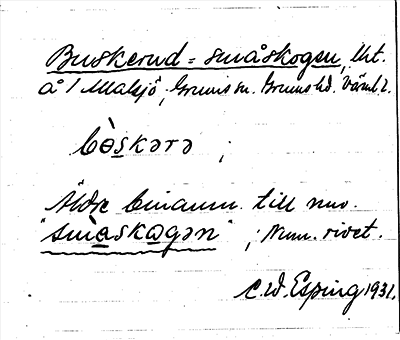 Buskerud = småskogen, Urt.
å / Malsjö, Grums sn. Grums hd. Värml.
bò̤skərə ;
Äldre binamn till nuv.
"smàskogən" ; Num. rivet.
C.W. Esping 1931.